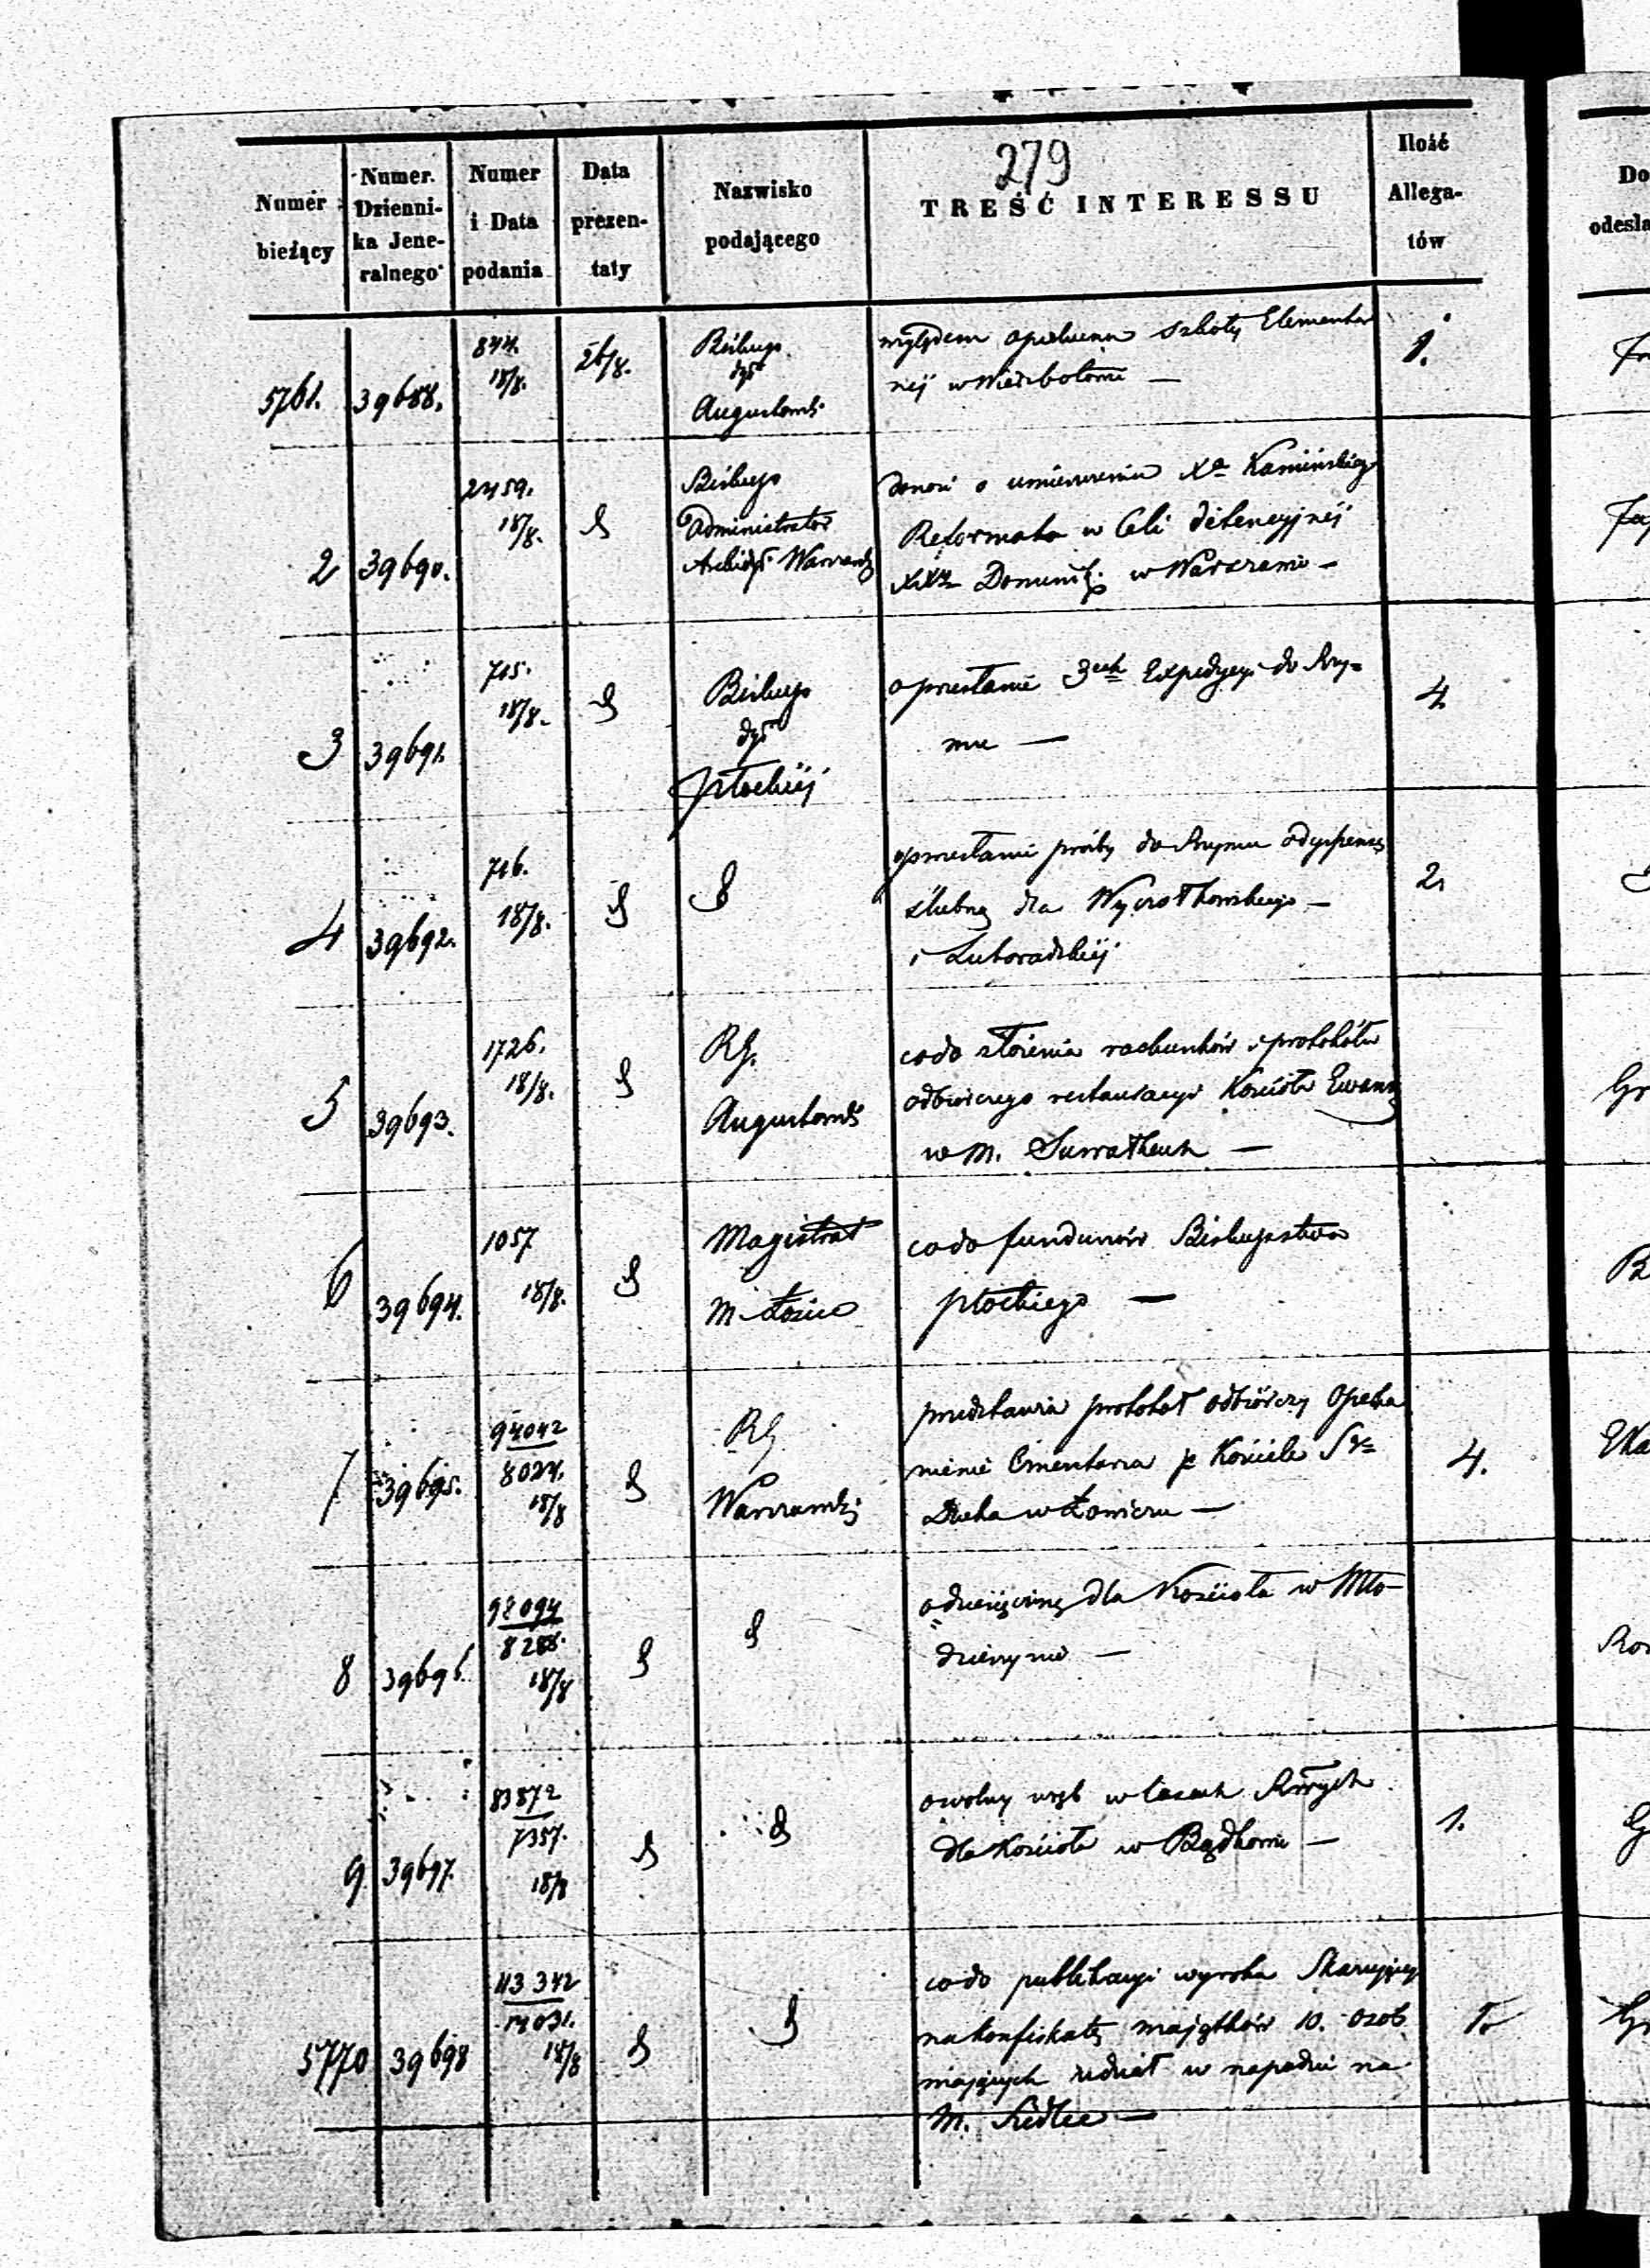 279
Numer bieżący
Numer Dzienni- ka Jene- ralnego
Numer i Data podania
Data prezen- taty
Nazwisko podającego
TREŚĆ INTERESSU
Ilość Allega- tów
Do
odesła
5761. 39688. 844. 18/8. 26/8.
Biskup
dyi
Augustowsk.
względem opiekuna szkoły Elementar
nej w Wierzbołowie —
1.
2 39690. 2459. 18/8.
Biskup
Administrator
Archidyi Warszawsk
donosi o umieszczeniu Xa Kamińskiego
Reformata w Celi detencyjnej
XXz Dominik. w Warszawie —
3 39691. 715. 18/8.
Biskup
dyi
Płockiej
o przesłanie 3ech Expedycyi do Rzy=
mu —
4
4 39692. 716. 18/8.
o przesłanie prośby do Rzymu o dyspensę
ślubną dla
i Luboradzkiej
2
5 39693. 1726. 18/8.
RG.
Augustowski
co do złożenia rachunków i protokółu
odbiorczego restauracyi Kościoła Ewang
w M. Suwałkach —
6 39694. 1057 18/8.
Magistrat
M. Łosice
co do funduszów Biskupstwa
płockiego —
7 39695. 8024. 18/8
RG
Warszawski
przedstawia protokół odbiorczy Oparka
nienie Cmentarza p. Kościele Sgo
Ducha w Łowiczu —
4.
8 39696. 18/8
o dziesięcinę dla Kościoła w Mło-
dzieszynie —
9 39697. 83872 7357. 18/8
o wolny wrąb w lasach Rządowych
dla Kościoła w Bądkowie —
1.
5770 39698 113342 18/8
co do publikacyi wyroku Skazujący
na konfiskatę majątków 10. osob
mających udział w napadzie na
M. Siedlce —
1.